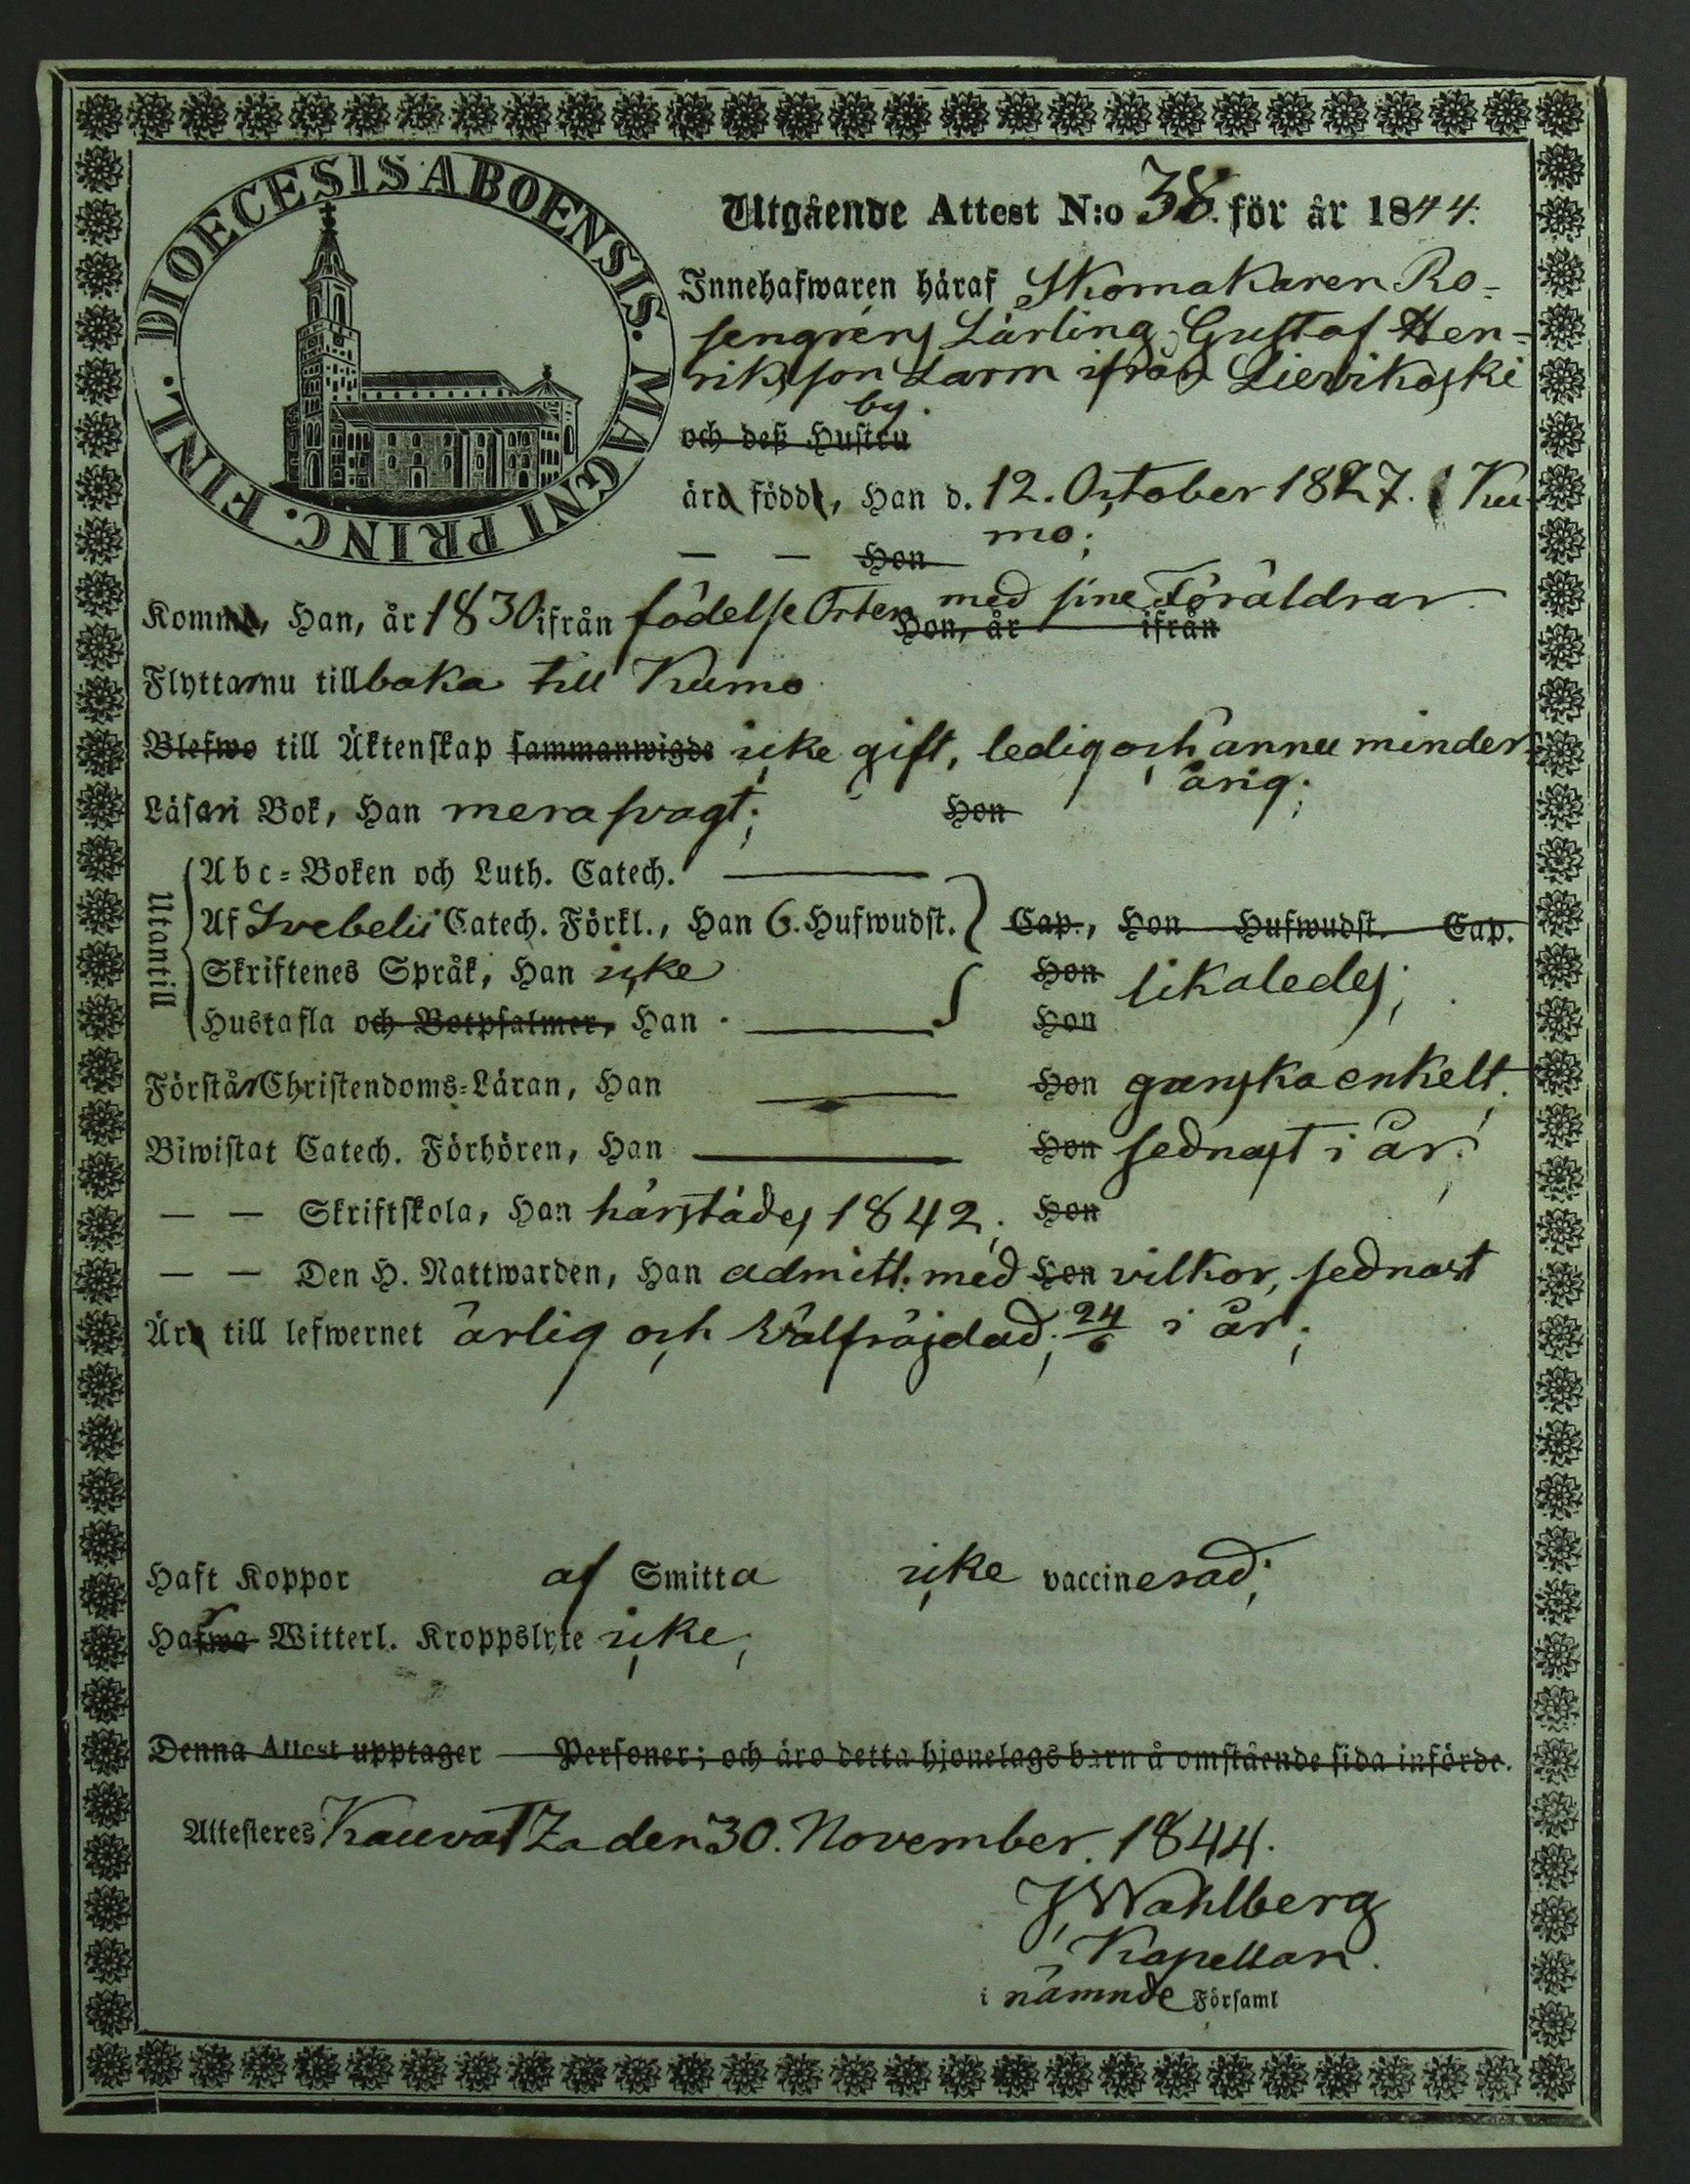 DIOECESIS ABOENSIS. MAGNI PRINC. FINL.
Utgående Attest N:o 38. för år 1844.
Innehafwaren häraf Skomakaren Ro-
sengréns Lärling, Gustaf Hen-
riksson Larm ifrån Lievikoski
by.
och deß Hustru
äro född, Han d. 12. October 1827. i Ku-
mo;
— — Hon
Komm, Han, år 1830 ifrån födelse Orten med sine Föräldrar.
Hon, år ifrån
Flyttar nu tillbaka till Kumo
Blefwo till Äktenskap sammanwigde icke gift, ledig och ännu minder-
årig;
Läser i Bok, Han mera svagt; Hon
Utantill
Abc-Boken och Luth. Catech.
Af Svebelii Catech. Förkl., Han 6. Hufwudst. Cap., Hon Hufwudst. Cap.
Skriftenes Språk, Han icke Hon likaledes;
Hustafla och Botpsalmer, Han Hon
Förstår Christendoms-Läran, Han Hon ganska enkelt;
Biwistat Catech. Förhören, Han Hon sednast i år;
— — Skriftskola, Han härstädes 1842; Hon
— — Den H. Nattwarden, Han admitt. med Hon vilkor, sednast
Är till lefwernet ärlig och välfräjdad; 24/6 i år;
Haft Koppor af Smitta icke vaccinerad;
Hafwa Witterl. Kroppslyte icke;
Denna Attest upptager Personer; och äro detta hjonelags barn å omstående sida införde.
Attesteres Kauvatza den 30. November. 1844.
J Wahlberg
Kapellan.
i nämnde Församl